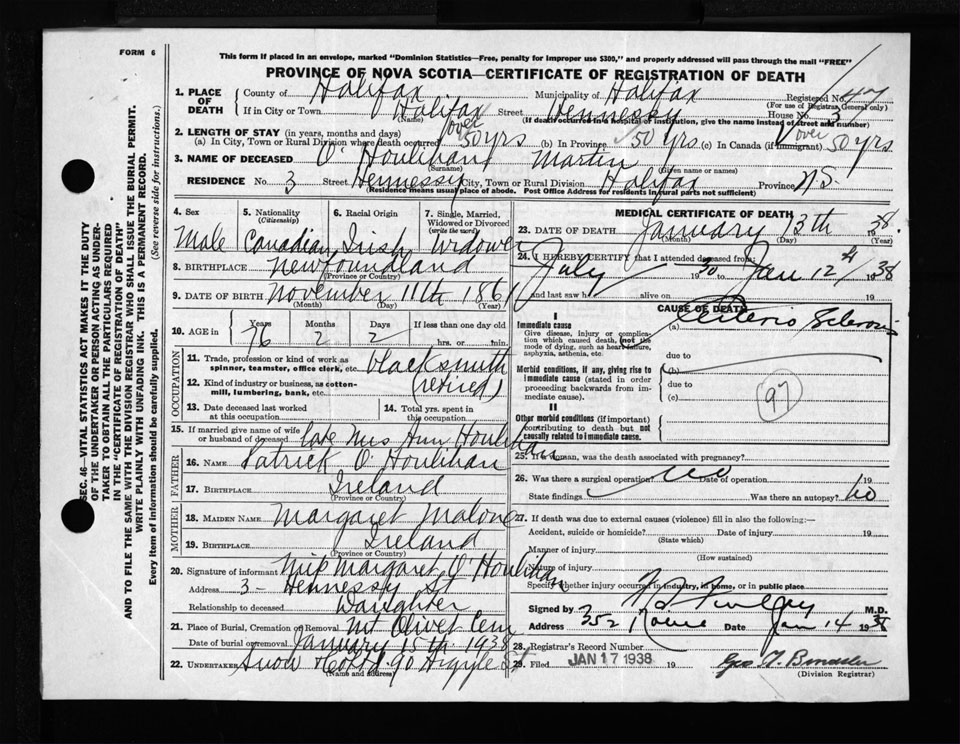 FORM 6
This form if placed in an envelope, marked "Dominion Statistics—Free, penalty for improper use $300," and properly addressed will pass through the mail "FREE"
PROVINCE OF NOVA SCOTIA—CERTIFICATE OF REGISTRATION OF DEATH
1. PLACE OF DEATH
County of Halifax Municipality of Halifax Registered No. 47
(For use of Registrar General only)
If in City or Town Halifax Street Hennessy House No. 3
(Name) (If death occurred in a hospital or institution, give the name instead of street and number)
2. LENGTH OF STAY (in years, months and days)
(a) In City, Town or Rural Division where death occurred over 50 yrs (b) In Province 50 yrs. (c) In Canada (if immigrant) over 50 yrs
3. NAME OF DECEASED O'Houlihan Martin
(Surname) (Given name or names)
RESIDENCE No. 3 Street Hennessy City, Town or Rural Division Halifax Province N.S.
(Residence means usual place of abode. Post Office Address for residents in rural parts not sufficient)
4. Sex 5. Nationality (Citizenship) 6. Racial Origin 7. Single, Married, Widowed or Divorced (write the word)
Male Canadian Irish Widower
8. BIRTHPLACE Newfoundland
(Province or Country)
9. DATE OF BIRTH November 11th 1861
(Month) (Day) (Year)
10. AGE in Years Months Days If less than one day old
76 2 2 hrs. or min.
OCCUPATION
11. Trade, profession or kind of work as spinner, teamster, office clerk, etc. blacksmith
12. Kind of industry or business, as cotton-mill, lumbering, bank, etc. (retired)
13. Date deceased last worked at this occupation
14. Total yrs. spent in this occupation
15. If married give name of wife or husband of deceased late Mrs Ann Houlihan
FATHER
16. NAME Patrick O'Houlihan
17. BIRTHPLACE Ireland
(Province or Country)
MOTHER
18. MAIDEN NAME Margaret Malone
19. BIRTHPLACE Ireland
(Province or Country)
20. Signature of informant Margaret O'Houlihan
Address 3- Hennessy St
Relationship to deceased Daughter
21. Place of Burial, Cremation or Removal Mt Olivet Cem
Date of burial or removal January 15th. 1938
22. UNDERTAKER Snow & Co Ltd. 90 Argyle St
(Name and address)
MEDICAL CERTIFICATE OF DEATH
23. DATE OF DEATH January 13th 1938.
(Month) (Day) (Year)
24. I HEREBY CERTIFY that I attended deceased from:
July 1930 to Jan 12th 1938
and last saw h alive on 19
CAUSE OF DEATH
I
Immediate cause
Give disease, injury or complication which caused death, (not the mode of dying, such as heart failure, asphyxia, asthenia, etc.
(a) Arterio Sclerosis
due to
Morbid conditions, if any, giving rise to immediate cause (stated in order proceeding backwards from immediate cause).
(b)
due to
(c)
97
II
Other morbid conditions (if important) contributing to death but not causally related to immediate cause.
25. If a woman, was the death associated with pregnancy?
26. Was there a surgical operation? no Date of operation 19
State findings Was there an autopsy? no
27. If death was due to external causes (violence) fill in also the following:—
Accident, suicide or homicide? Date of injury 19
(State which)
Manner of injury
(How sustained)
Nature of injury
Specify whether injury occurred in industry, in home, or in public place
Signed by M.D.
Address 352 Date Jan 14 1938
28. Registrar's Record Number
29. Filed JAN 17 1938 19
(Division Registrar)
SEC. 46—VITAL STATISTICS ACT MAKES IT THE DUTY
OF THE UNDERTAKER OR PERSON ACTING AS UNDER-
TAKER TO OBTAIN ALL THE PARTICULARS REQUIRED
IN THE "CERTIFICATE OF REGISTRATION OF DEATH"
AND TO FILE THE SAME WITH THE DIVISION REGISTRAR WHO SHALL ISSUE THE BURIAL PERMIT.
WRITE PLAINLY WITH UNFADING INK. THIS IS A PERMANENT RECORD.
Every item of information should be carefully supplied. (See reverse side for instructions.)